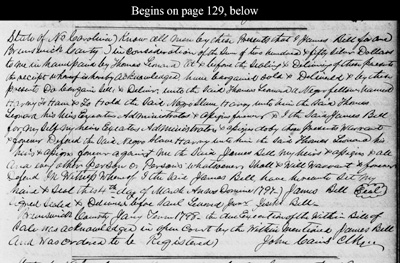 Begins on page 129, below
State of No Carolina) Know all men by these Presents that I James Bell for and
Brunswick County ) in consideration of the Sum of two hundred & fifty Silver Dollars
to me in hand paid by Thomas Leonard At & before the Sealing & Delivering of these presents
the receipt whereof is hereby acknowledged have bargained Sold & Delivered & by these
presents Do bargain Sell & Deliver unto the Said Thomas Leonard a Negro fellow named
Harvey To Have & To Hold the Said Negro Slave Harvey unto him the Said Thomas
Leonard his Executors Administrators & Assigns forever & I the Said James Bell
for my Self my Heirs Executors Administrators & Assigns do by these Presents Warrant
& forever Defend the Said Negro Slave Harvey unto him the Said Thomas Leonard his
Heirs & Assigns forever against me the Said James Bell my Heirs & Assigns & all
And every other Person or Persons whatsoever Shall & Will Warrant & forever
Defend In Witness Whereof I the Said James Bell have hereunto Set my
hand & Seal this 4th day of March Anno Domini James Bell Seal
Signed Sealed & Delivered before Saml Leonard
Brunswick County Term the due Execution of the Within Bill of
Sale was acknowledged in open Court by the Within mentioned James Bell
And was ordered to be Registered)